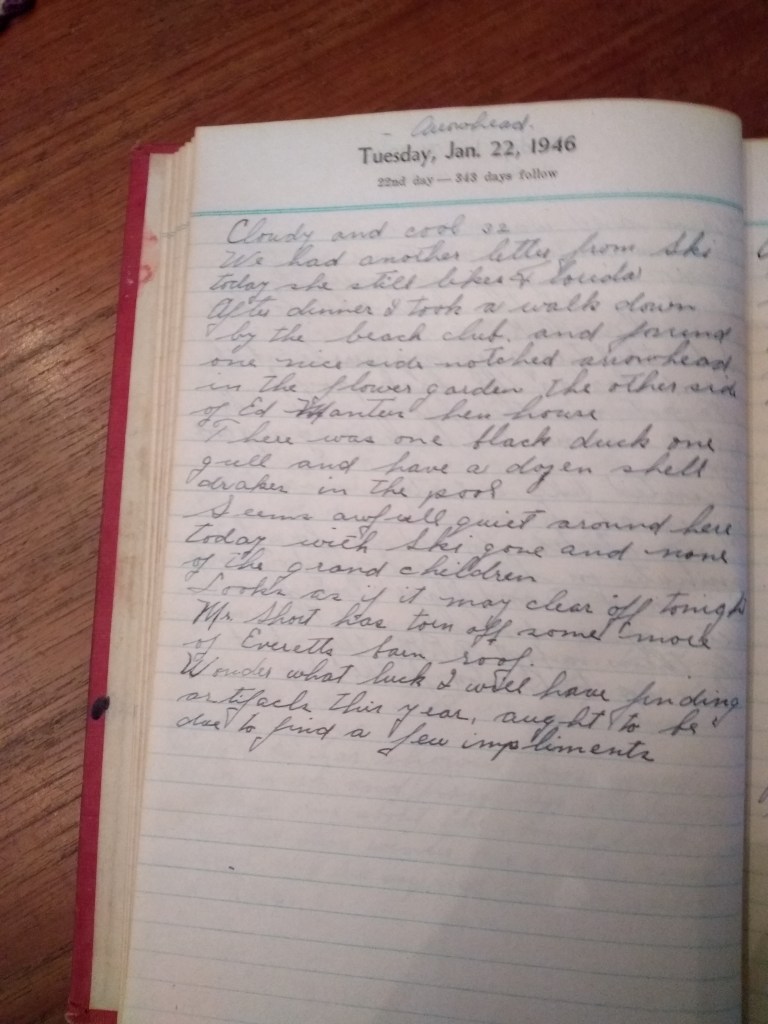 - Arrowhead.
Tuesday, Jan. 22, 1946
22nd day — 343 days follow
Cloudy and cool 32
We had another letter from Ski
today she still likes
After dinner I took a walk down
by the beach club. and found
one nice side notched arrowhead
in the flower garden the other side
of Ed hen house
There was one black duck one
gull and have a dozen shell
drakes in the pool
Seems awfull quiet around here
today with Ski gone and none
of the grand children
Looks as if it may clear off tonight
Mr. Short has torn off some more
of Everetts barn roof.
Wonder what luck I will have finding
artifacts this year, aught to be
due to find a few impliments